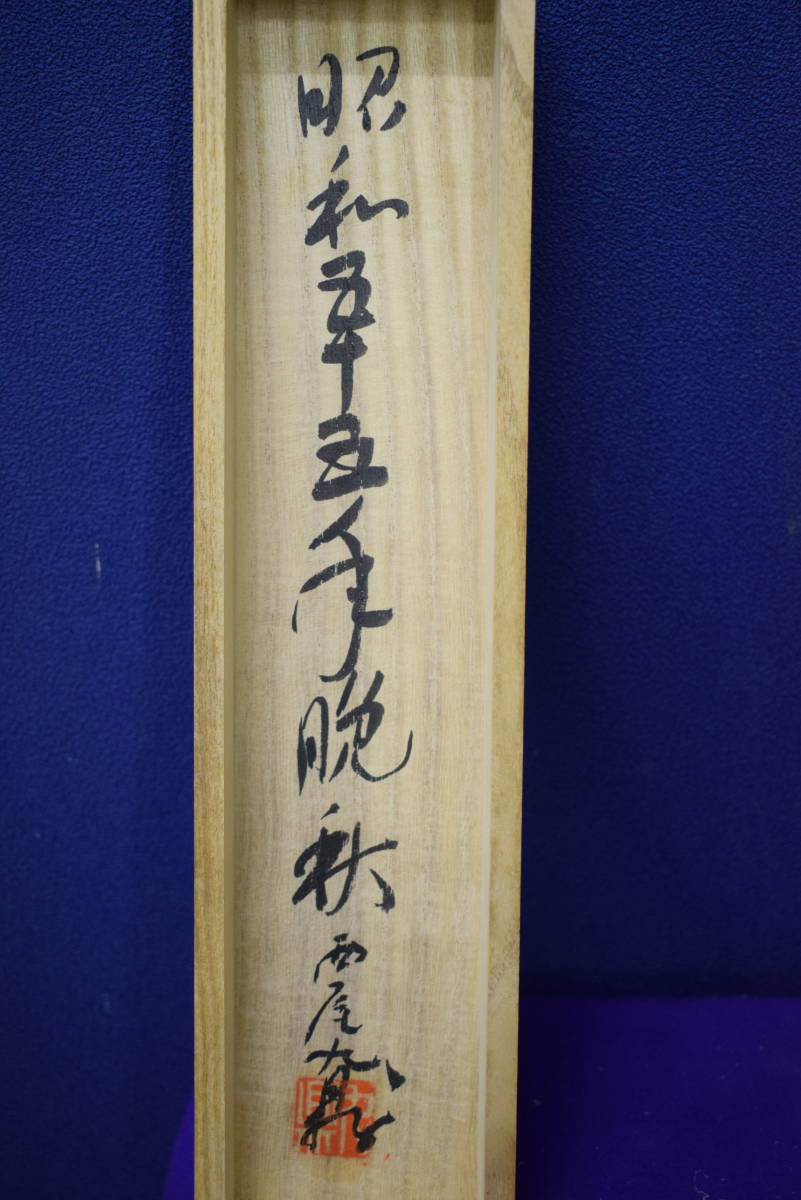 昭和五十五年晩秋
西尾